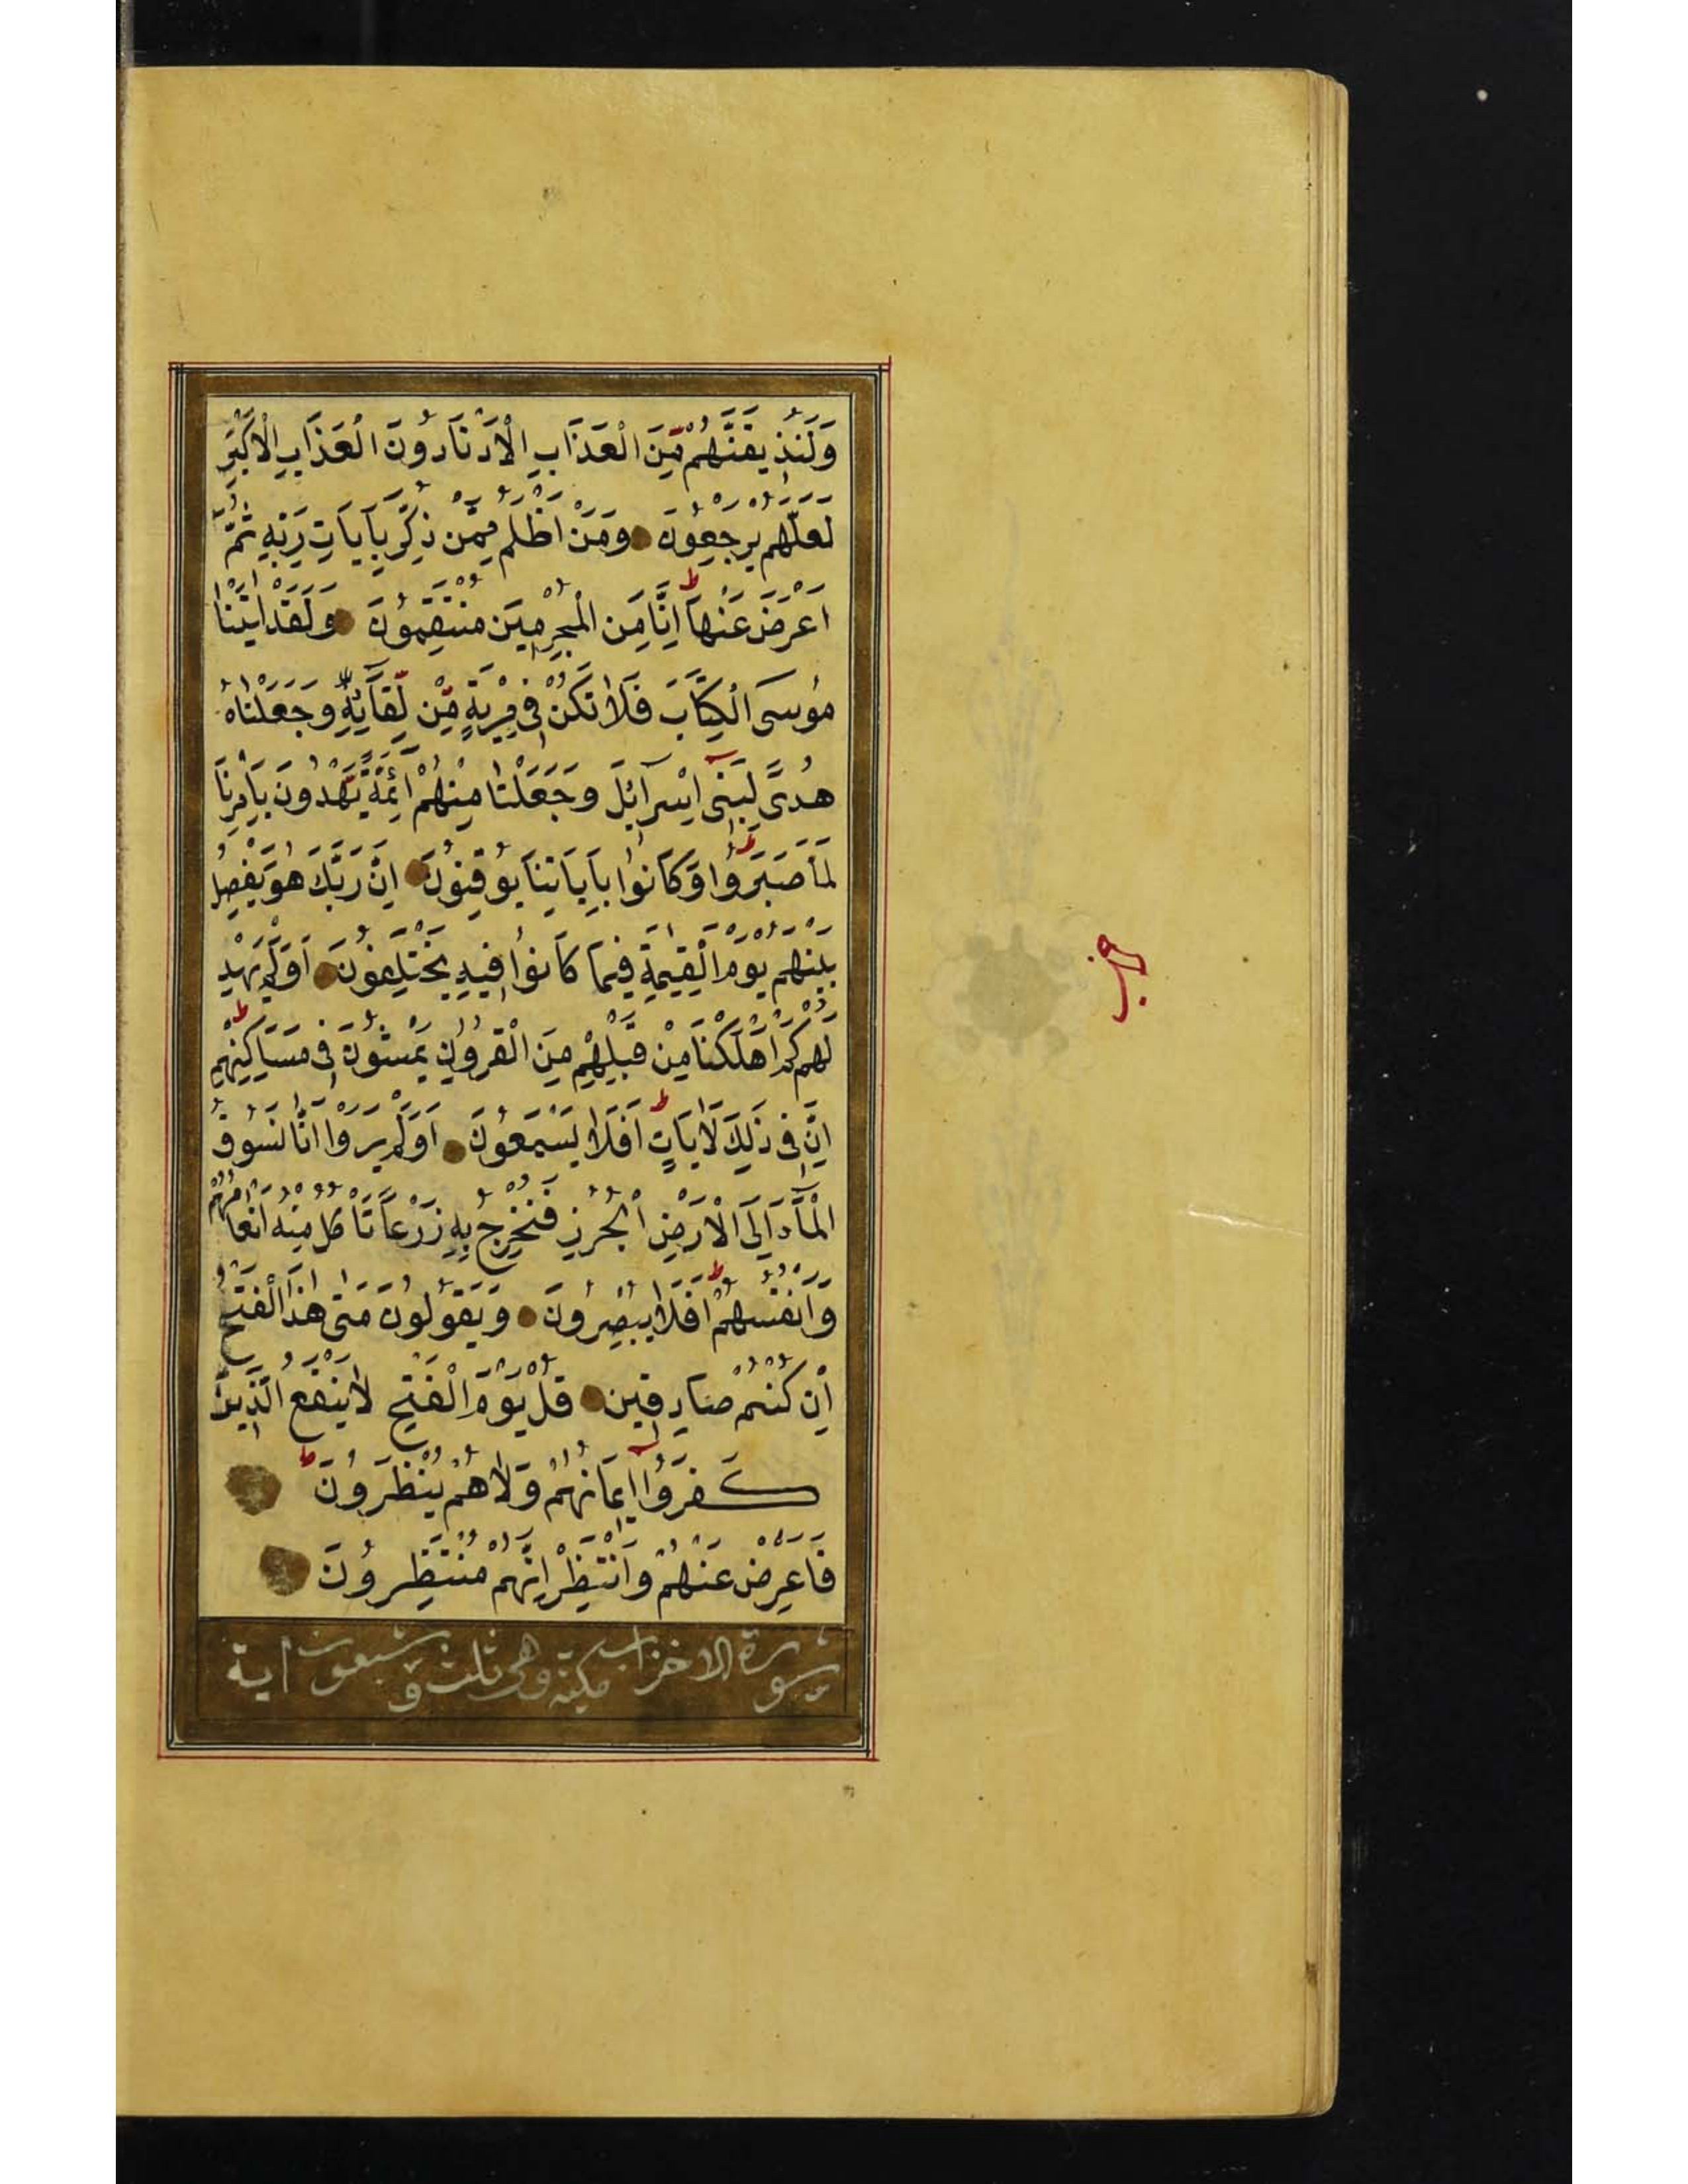 وَلَنُذِيقَنَّهُمْ مِّنَ الْعَذَابِ الْأَدْنَا دُونَ الْعَذَابِ الْأَكْبَرِ
لَعَلَّهُمْ يَرْجِعُونَ وَمَنْ اَظْلَمُ مِمَّنْ ذُكِّرَ بِآيَاتِ رَبِّهِ ثُمَّ
اَعْرَضَ عَنْهَا اِنَّا مِنَ الْمُجْرِمِينَ مُنْتَقِمُونَ وَلَقَدْ اٰتَيْنَا
مُوسَى الْكِتَابَ فَلَا تَكُنْ فِي مِرْيَةٍ مِّنْ لِّقَآئِهِ وَجَعَلْنَاهُ
هُدًى لِبَنِي اِسْرَآئِلَ وَجَعَلْنَا مِنْهُمْ اَئِمَّةً يَّهْدُونَ بِاَمْرِنَا
لَمَّا صَبَرُوا وَكَانُوا بِآيَاتِنَا يُوقِنُونَ اِنَّ رَبَّكَ هُوَ يَفْصِلُ
بَيْنَهُمْ يَوْمَ الْقِيٰمَةِ فِيمَا كَانُوا فِيهِ يَخْتَلِفُونَ اَوَلَمْ يَهْدِ
لَهُمْ كَمْ اَهْلَكْنَا مِنْ قَبْلِهِمْ مِنَ الْقُرُونِ يَمْشُونَ فِي مَسَاكِنِهِمْ
اِنَّ فِي ذٰلِكَ لَاٰيَاتٍ اَفَلَا يَسْمَعُونَ اَوَلَمْ يَرَوْا اَنَّا نَسُوقُ
الْمَآءَ اِلَى الْاَرْضِ الْجُرُزِ فَنُخْرِجُ بِهِ زَرْعًا تَاْكُلُ مِنْهُ اَنْعَامُهُمْ
وَاَنْفُسُهُمْ اَفَلَا يُبْصِرُونَ وَيَقُولُونَ مَتٰى هٰذَا الْفَتْحُ
اِنْ كُنْتُمْ صَادِقِينَ قُلْ يَوْمَ الْفَتْحِ لَا يَنْفَعُ الَّذِينَ
كَفَرُوا اِيمَانُهُمْ وَلَا هُمْ يُنْظَرُونَ
فَاَعْرِضْ عَنْهُمْ وَانْتَظِرْ اِنَّهُمْ مُنْتَظِرُونَ
سورة الاحزاب مكية وهي ثلث و سبعون اية